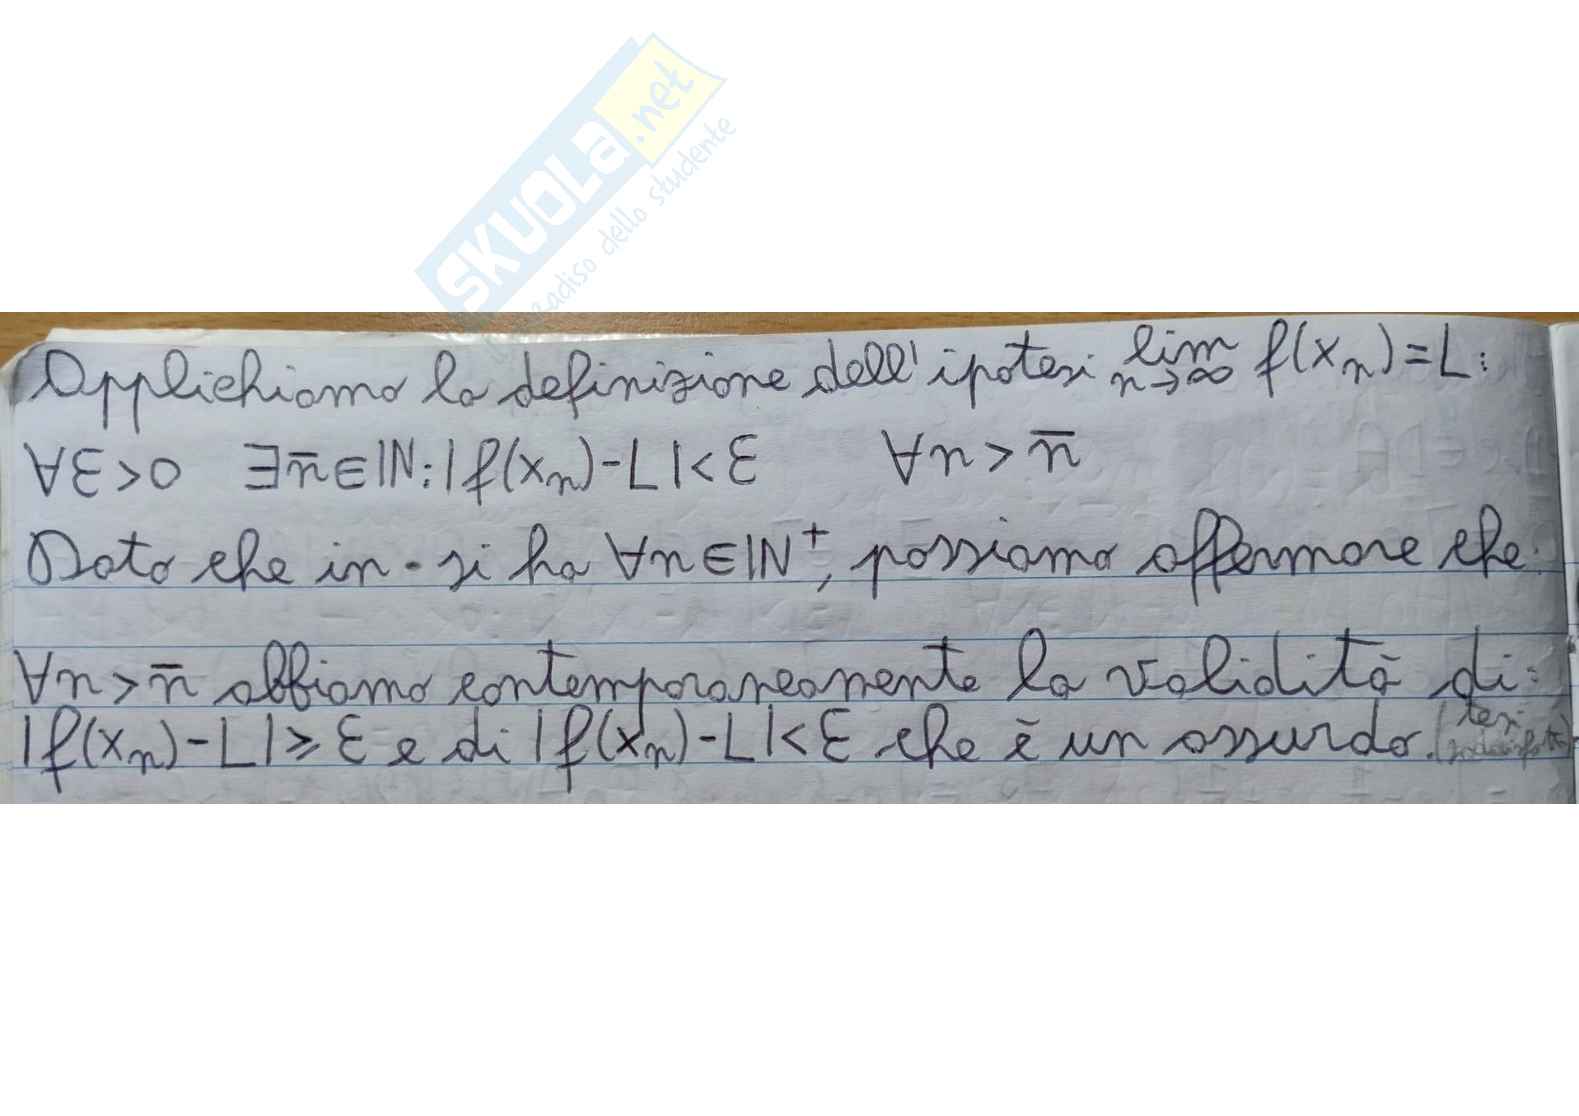 SKUOLA.net
paradiso dello studente
Applichiamo la definizione dell'ipotesi lim n→∞ f(xₙ)=L:
∀ε>0 ∃n̅∈ℕ:|f(xₙ)-L|<ε ∀n>n̅
Dato che in • si ha ∀n∈ℕ⁺, possiamo affermare che:
∀n>n̅ abbiamo contemporaneamente la validità di:
|f(xₙ)-L|≥ε e di |f(xₙ)-L|<ε che è un assurdo. (tesi